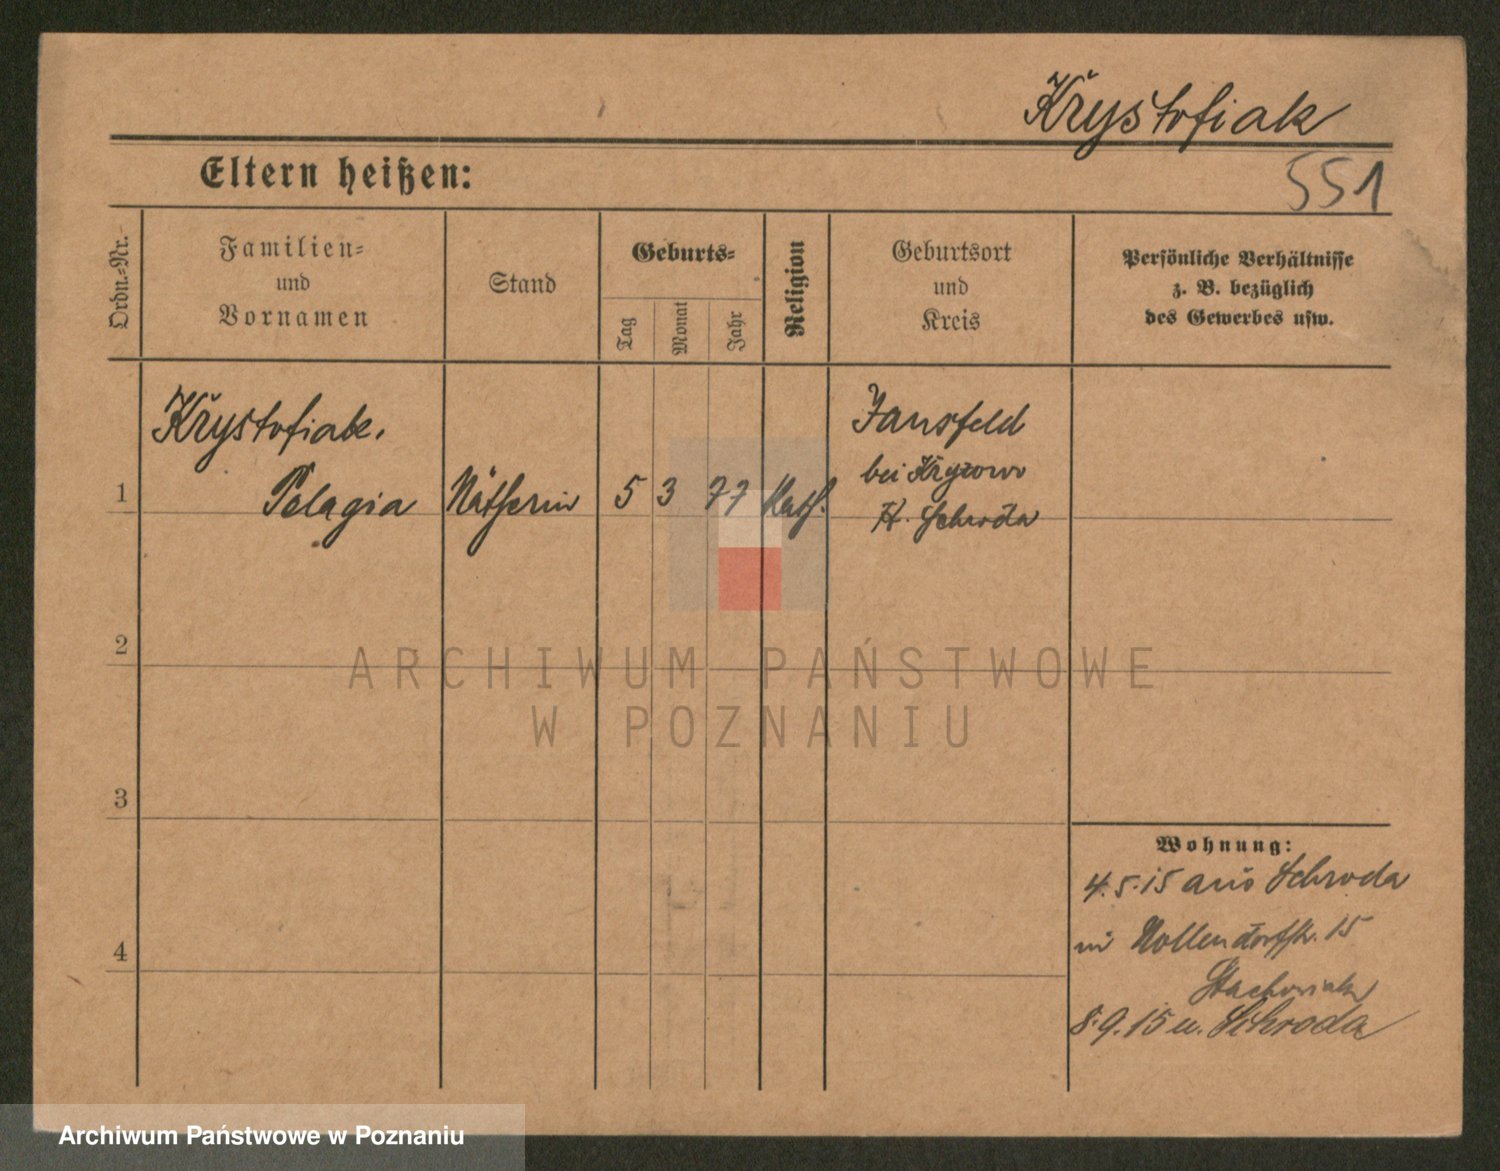 Krystofiak
551
Eltern heißen:
Ordn.-Nr.
Familien-
und
Vornamen
Stand
Geburts-
Tag
Monat
Jahr
Religion
Geburtsort
und
Kreis
Persönliche Verhältnisse
z. B. bezüglich
des Gewerbes usw.
Krystofiak,
1 Pelagia Nätherin 5 3 77 Kath.
Jansfeld
bei
K. Schroda
2
ARCHIWUM PAŃSTWOWE
W POZNANIU
3
Wohnung:
4.5.15 aus Schroda
in Nollendorfstr. 15
4
Stachowiak
8.9.15 n. Schroda
Archiwum Państwowe w Poznaniu